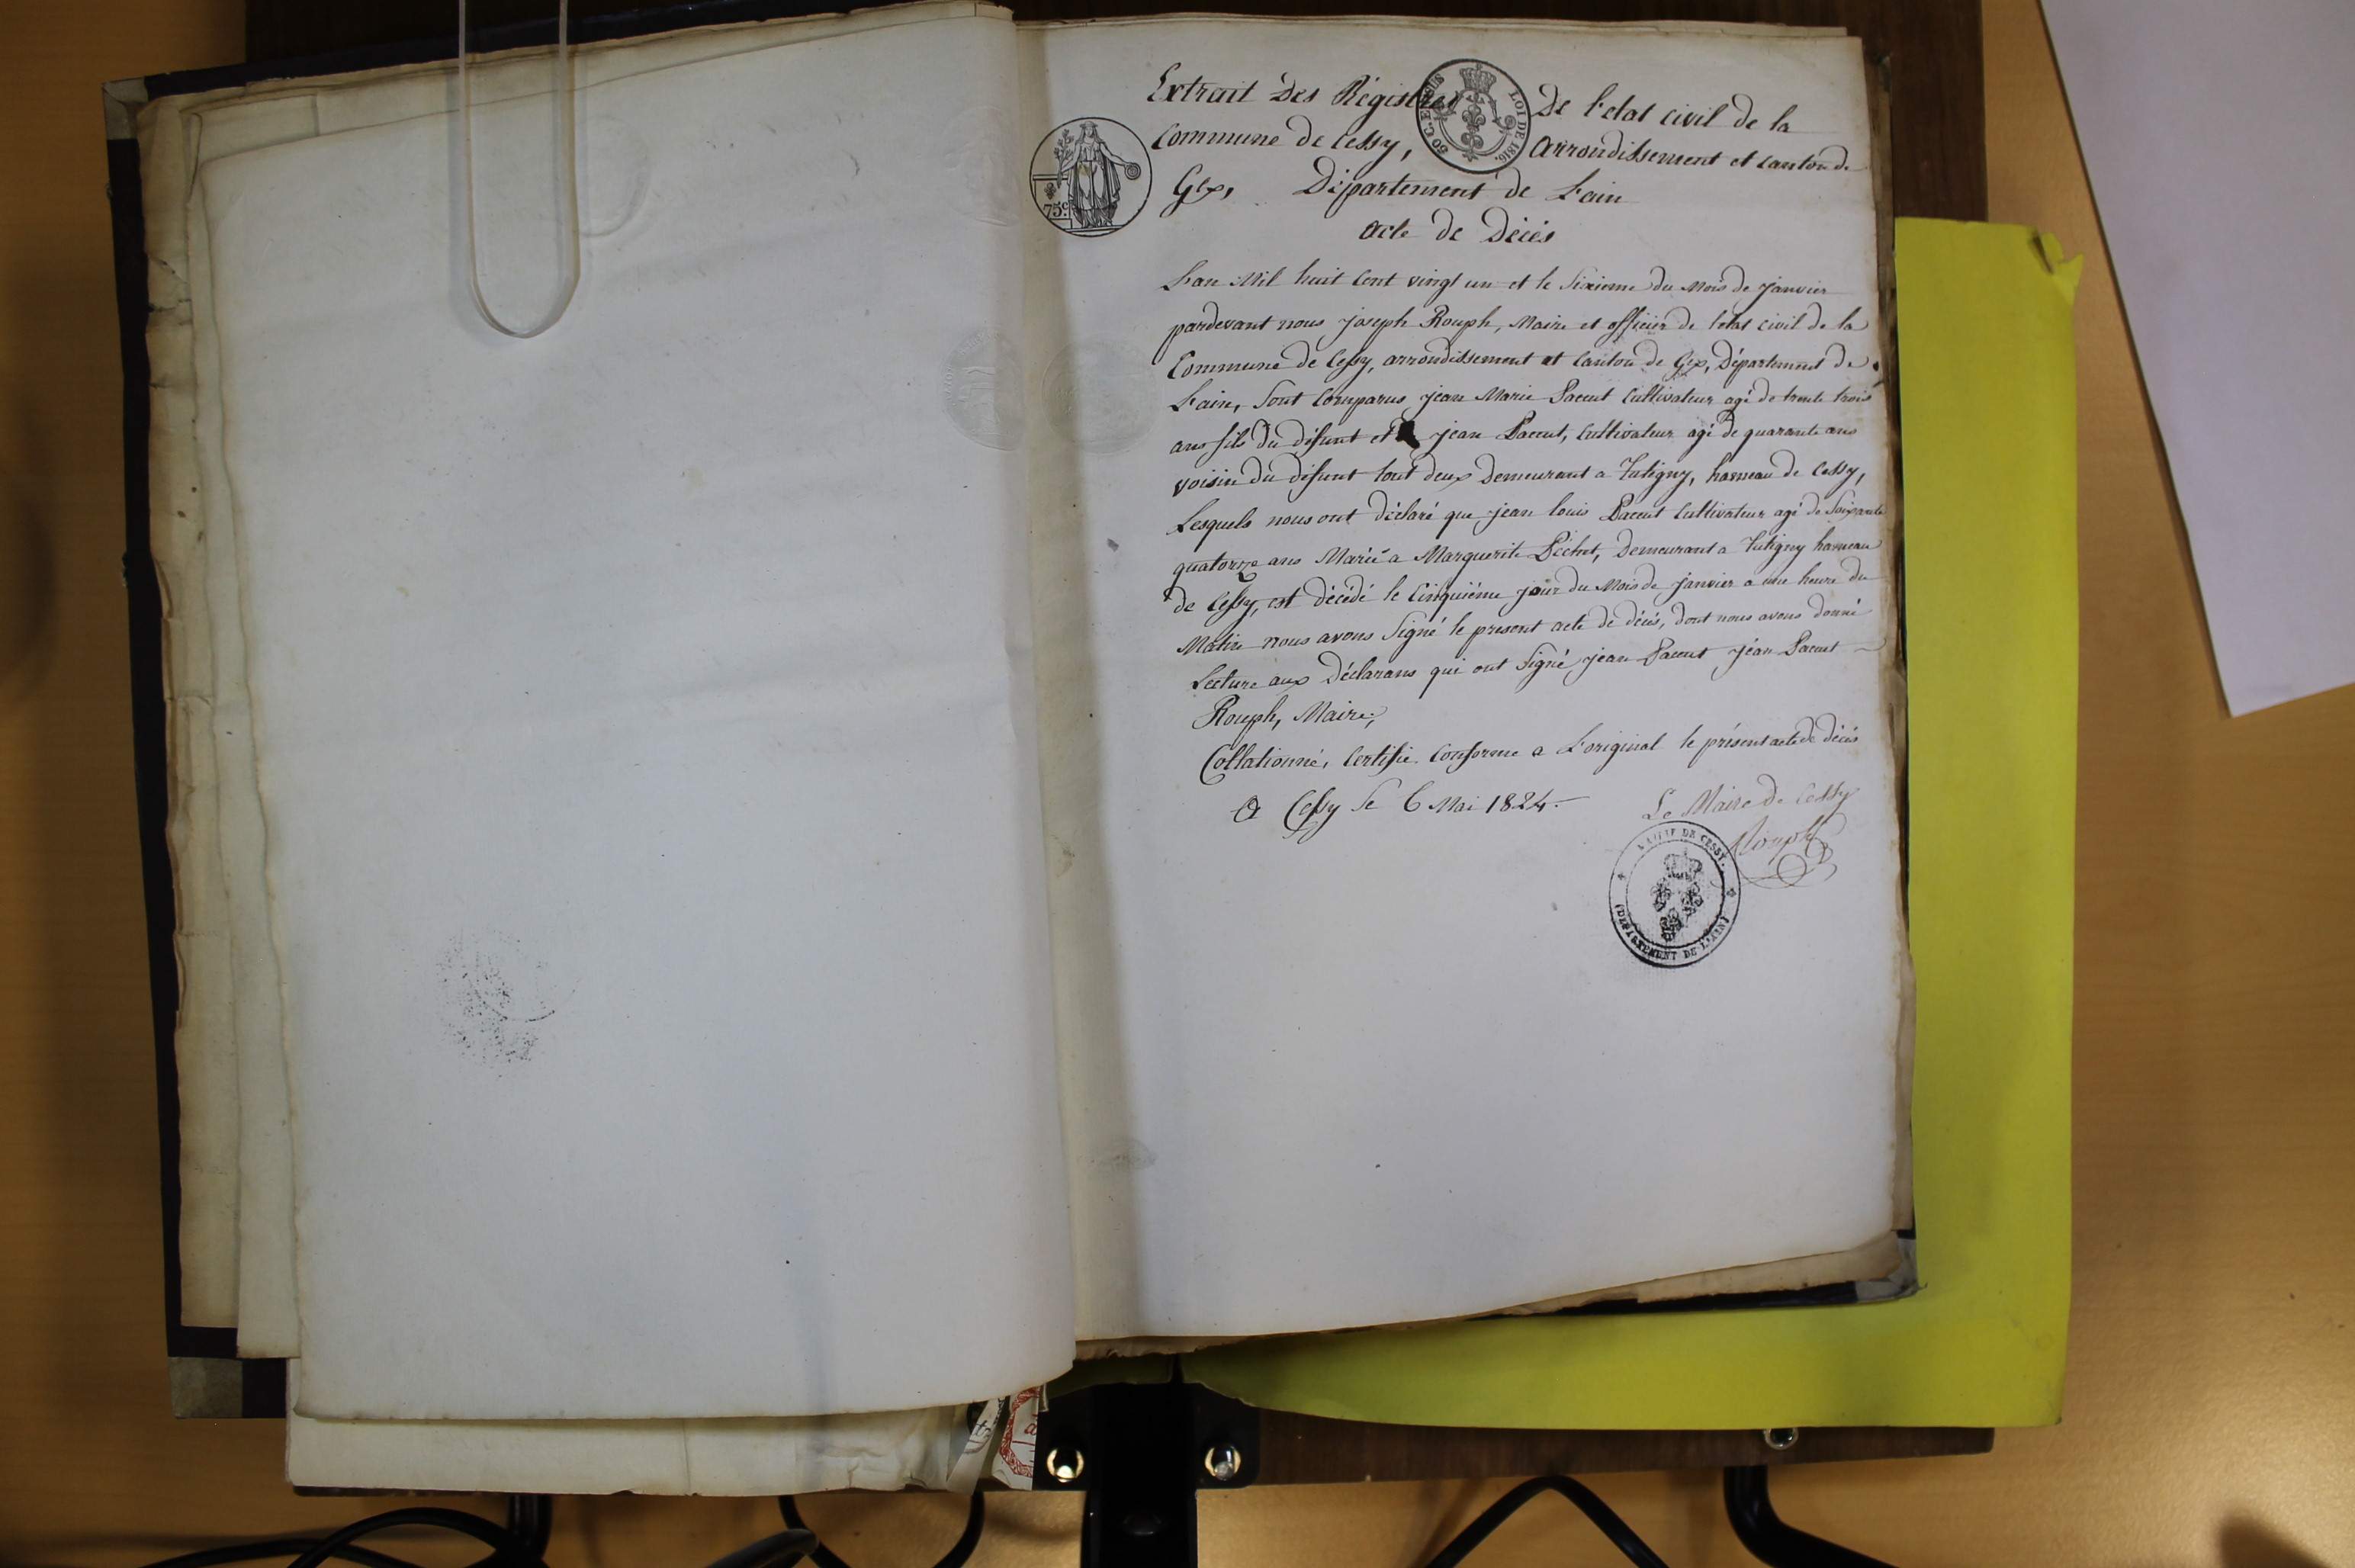 Extrait des Régistres de l'etat civil de la
Commune de Cessy, arrondissement et canton de
Gex, Département de L'ain
acte de Décés
50 C. EN SUS
LOI DE 1816.
75 c
L'an Mil huit cent vingt un et le sixieme du mois de janvier
pardevant nous joseph Rouph, Maire et officier de l'etat civil de la
Commune de Cessy, arrondissement et canton de Gex, Département de
L'ain, sont comparus jean Marie Pacout cultivateur agé de trente trois
ans fils du défunt et jean Pacout, cultivateur agé de quarante ans
voisin du défunt tout deux demeurant a Tutigny, hameau de Cessy,
Lesquels nous ont déclaré que jean louis Pacout cultivateur agé de soixante
quatorze ans Marié a Marguerite Péchet, demeurant a Tutigny hameau
de Cessy, est décédé le cinquiéme jour du mois de janvier a une heure du
Matin nous avons signé le present acte de décés, dont nous avons donné
Lecture aux déclarans qui ont signé jean Pacout jéan Pacout
Rouph, Maire;
Collationné, certifié conforme a L'original le présent acte de décés
a Cessy le 6 Mai 1824.
Le Maire de Cessy
Rouph
MAIRIE DE CESSY.
(DEPARTEMENT DE L'AIN)